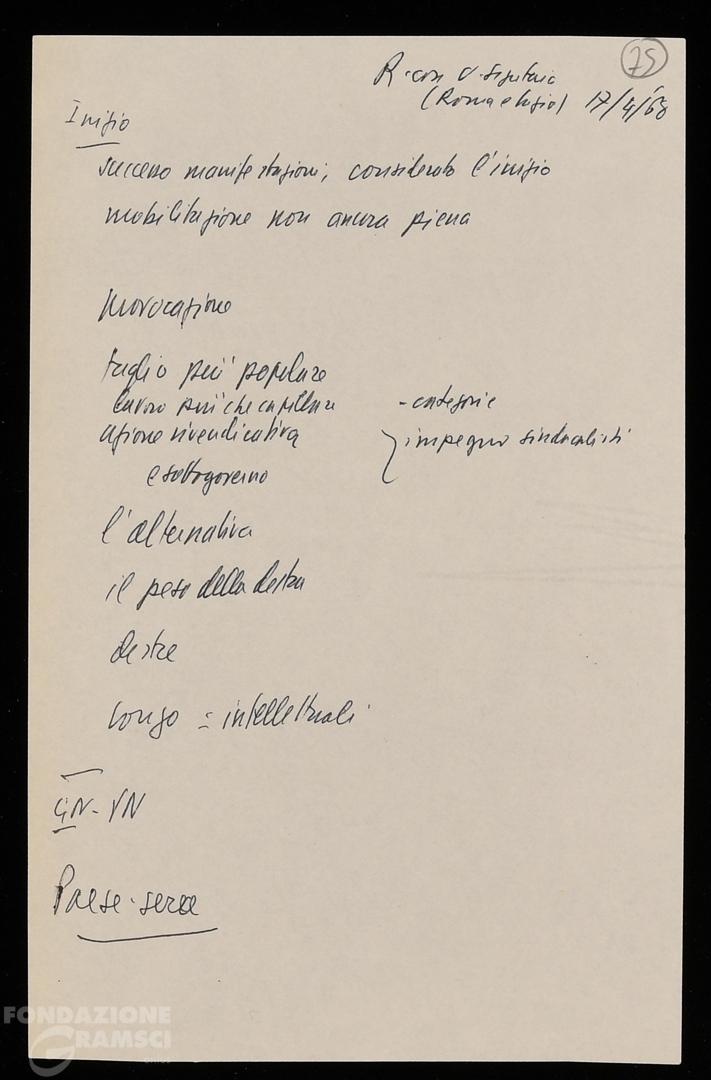 75
R. con V. Segretario
(Roma e Lazio) 17/4/68
Inizio
successo manifestazioni, considerato l'inizio
mobilitazione non ancora piena
Provocazione
taglio più popolare
lavoro più che capillare - categorie
azione rivendicativa } impegno sindacalisti
e sottogoverno
l'alternativa
il peso della destra
destre
Longo = intellettuali
GN - VN
Paese-sera
FONDAZIONE
GRAMSCI